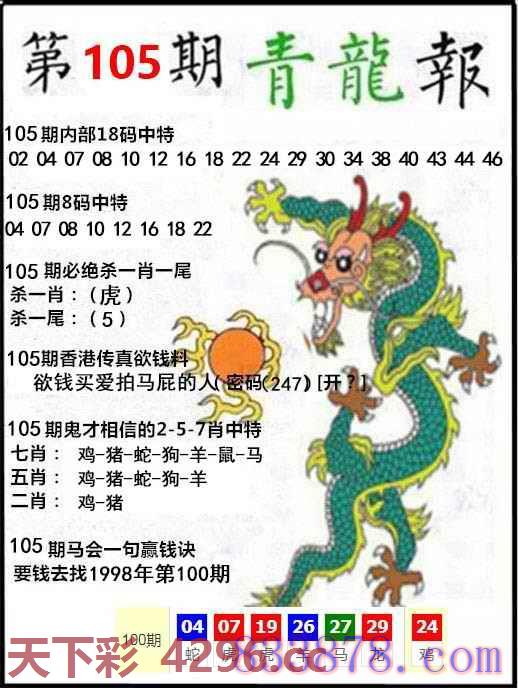 第105期青龍報
105期内部18码中特
02 04 07 08 10 12 16 18 22 24 29 30 34 38 40 43 44 46
105期8码中特
04 07 08 10 12 16 18 22
105期必绝杀一肖一尾
杀一肖：（虎）
杀一尾：（5）
105期香港传真欲钱料
欲钱买爱拍马屁的人(密码(247) [开？]
105期鬼才相信的2-5-7肖中特
七肖： 鸡-猪-蛇-狗-羊-鼠-马
五肖： 鸡-猪-蛇-狗-羊
二肖： 鸡-猪
105期马会一句赢钱诀
要钱去找1998年第100期
100期 04 07 19 26 27 29 24
蛇 虎 虎 羊 马 龙 鸡
天下彩 4296.cc